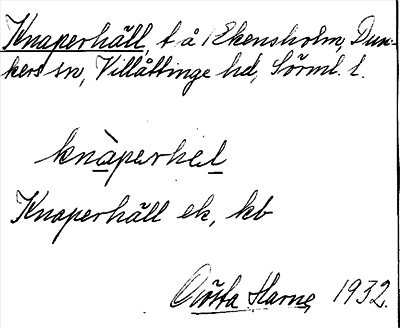 Knaperhäll, t å Ekensholm, Dun-
kers sn, Villåttinge hd, Sörml. l.
knàperhel
Knaperhäll ek, kb
Gösta Harne, 1932.